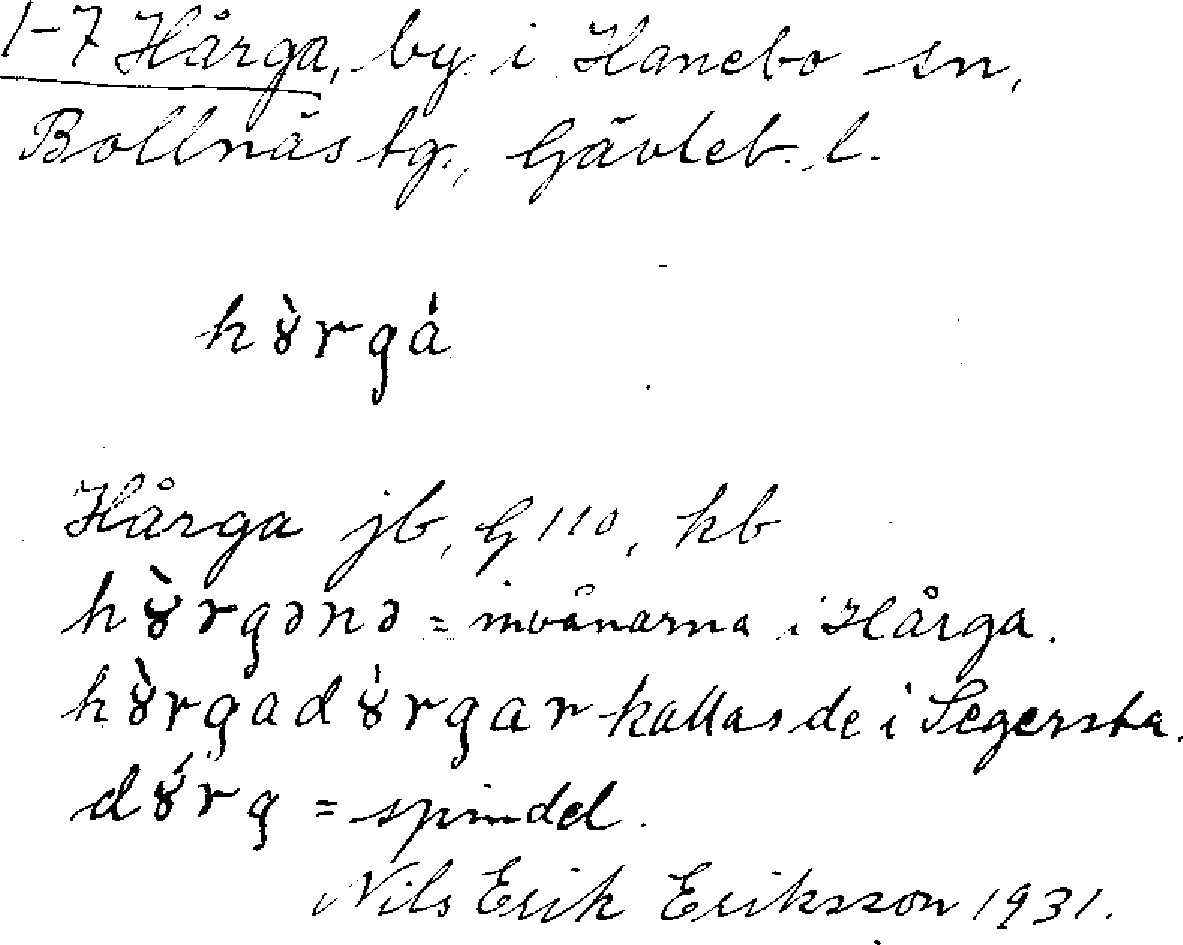 1-7 Hårga, by i Hanebo sn,
Bollnäs tg., Gävleb. l.
hȣ̀rgá
Hårga jb, G110, kb
hȣ̀rgənə = invånarna i Hårga.
hȣ̀rgadȣ́rgar kallas de i Segersta.
dȣ́rg = spindel.
Nils Erik Eriksson 1931.